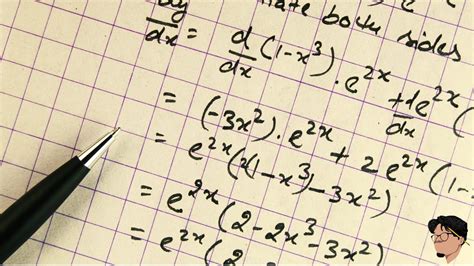 both sides
dy/dx = d/dx (1-x³) . e²ˣ + de²ˣ/dx (
= (-3x²) . e²ˣ + 2e²ˣ (1-
= e²ˣ (2(1-x³)-3x²)
= e²ˣ (2-2x³-3x²)
= e²ˣ (2